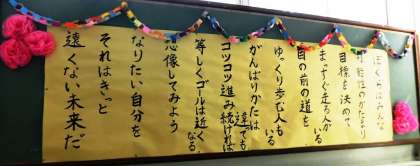 ぼくらはみんな
可能性のかたまり
目標を決めて
まっすぐ走る人がいる
自の前の道を
ゆっくり歩む人もいる
がんばりかたは違っても
コツコツ進み続ければ
等しくゴールは近くなる
想像してみよう
なりたい自分を
それはきっと
遠くない未来だ